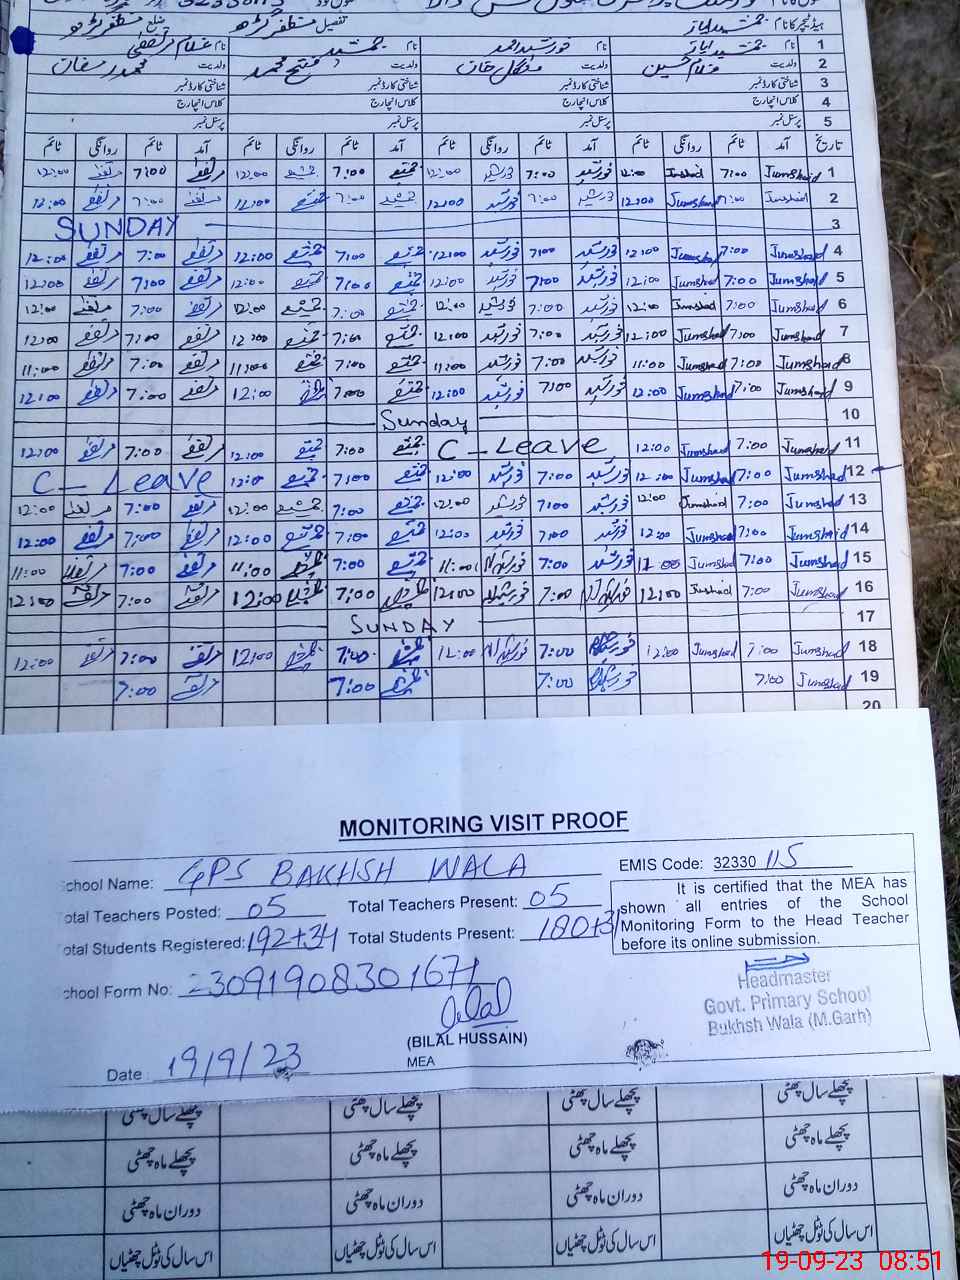 ہیڈ ٹیچر کا نام جمشید ایاز تحصیل مظفر گڑھ ضلع مظفر گڑھ
1 نام جمشید ایاز نام خورشید احمد نام جمشید نام غلام مرتضیٰ
2 ولدیت غلام حسین ولدیت منگل خان ولدیت فتح محمد ولدیت محمد رمضان
3 شناختی کارڈ نمبر شناختی کارڈ نمبر شناختی کارڈ نمبر شناختی کارڈ نمبر
4 کلاس انچارج کلاس انچارج کلاس انچارج کلاس انچارج
5 پرسنل نمبر پرسنل نمبر پرسنل نمبر پرسنل نمبر
تاریخ آمد ٹائم روانگی ٹائم آمد ٹائم روانگی ٹائم آمد ٹائم روانگی ٹائم آمد ٹائم روانگی ٹائم
1 Jumshaid 7:00 Jumshaid 12:00 خورشید 7:00 خورشید 12:00 جمشید 7:00 جمشید 12:00 مرتضیٰ 7:00 مرتضیٰ 12:00
2 Jumshaid 7:00 Jumshad 12:00 خورشید 7:00 خورشید 12:00 جمشید 7:00 جمشید 12:00 مرتضیٰ 7:00 مرتضیٰ 12:00
SUNDAY 3
4 Jumshad 7:00 Jumshad 12:00 خورشید 7:00 خورشید 12:00 جمشید 7:00 جمشید 12:00 مرتضیٰ 7:00 مرتضیٰ 12:00
5 Jumshad 7:00 Jumshad 12:00 خورشید 7:00 خورشید 12:00 جمشید 7:00 جمشید 12:00 مرتضیٰ 7:00 مرتضیٰ 12:00
6 Jumshad 7:00 Jumshad 12:00 خورشید 7:00 خورشید 12:00 جمشید 7:00 جمشید 12:00 مرتضیٰ 7:00 مرتضیٰ 12:00
7 Jumshad 7:00 Jumshad 12:00 خورشید 7:00 خورشید 12:00 جمشید 7:00 جمشید 12:00 مرتضیٰ 7:00 مرتضیٰ 12:00
8 Jumshad 7:00 Jumshad 11:00 خورشید 7:00 خورشید 11:00 جمشید 7:00 جمشید 11:00 مرتضیٰ 7:00 مرتضیٰ 11:00
9 Jumshad 7:00 Jumshad 12:00 خورشید 7:00 خورشید 12:00 جمشید 7:00 12:00 مرتضیٰ 7:00 مرتضیٰ 12:00
Sunday 10
11 Jumshad 7:00 Jumshad 12:00 C-Leave جمشید 7:00 جمشید 12:00 مرتضیٰ 7:00 مرتضیٰ 12:00
12 Jumshad 7:00 Jumshad 12:00 خورشید 7:00 خورشید 12:00 جمشید 7:00 جمشید 12:00 C-Leave
13 Jumshad 7:00 Jumshad 12:00 خورشید 7:00 خورشید 12:00 جمشید 7:00 جمشید 12:00 مرتضیٰ 7:00 مرتضیٰ 12:00
14 Jumshaid 7:00 Jumshad 12:00 خورشید 7:00 خورشید 12:00 جمشید 7:00 جمشید 12:00 مرتضیٰ 7:00 مرتضیٰ 12:00
15 Jumshad 7:00 Jumshad 11:00 خورشید 7:00 11:00 جمشید 7:00 11:00 مرتضیٰ 7:00 مرتضیٰ 11:00
16 Jumshad 7:00 Jushad 12:00 7:00 12:00 7:00 12:00 مرتضیٰ 7:00 مرتضیٰ 12:00
SUNDAY 17
18 Jumshad 7:00 Jumshad 12:00 7:00 12:00 7:00 12:00 مرتضیٰ 7:00 مرتضیٰ 12:00
19 Jumshad 7:00 7:00 7:00 مرتضیٰ 7:00
20
MONITORING VISIT PROOF
School Name: GPS BAKHSH WALA EMIS Code: 32330 115
Total Teachers Posted: 05 Total Teachers Present: 05
Total Students Registered: 192+34 Total Students Present: 180+31
It is certified that the MEA has shown all entries of the School Monitoring Form to the Head Teacher before its online submission.
School Form No: 23091908301671
Headmaster
Govt. Primary School
Bakhsh Wala (M.Garh)
Bilal
(BILAL HUSSAIN)
MEA
Date: 19/9/23
پچھلے سال چھٹی پچھلے سال چھٹی پچھلے سال چھٹی پچھلے سال چھٹی
پچھلے ماہ چھٹی پچھلے ماہ چھٹی پچھلے ماہ چھٹی پچھلے ماہ چھٹی
دوران ماہ چھٹی دوران ماہ چھٹی دوران ماہ چھٹی دوران ماہ چھٹی
اس سال کی ٹوٹل چھٹیاں اس سال کی ٹوٹل چھٹیاں اس سال کی ٹوٹل چھٹیاں اس سال کی ٹوٹل چھٹیاں
19-09-23 08:51